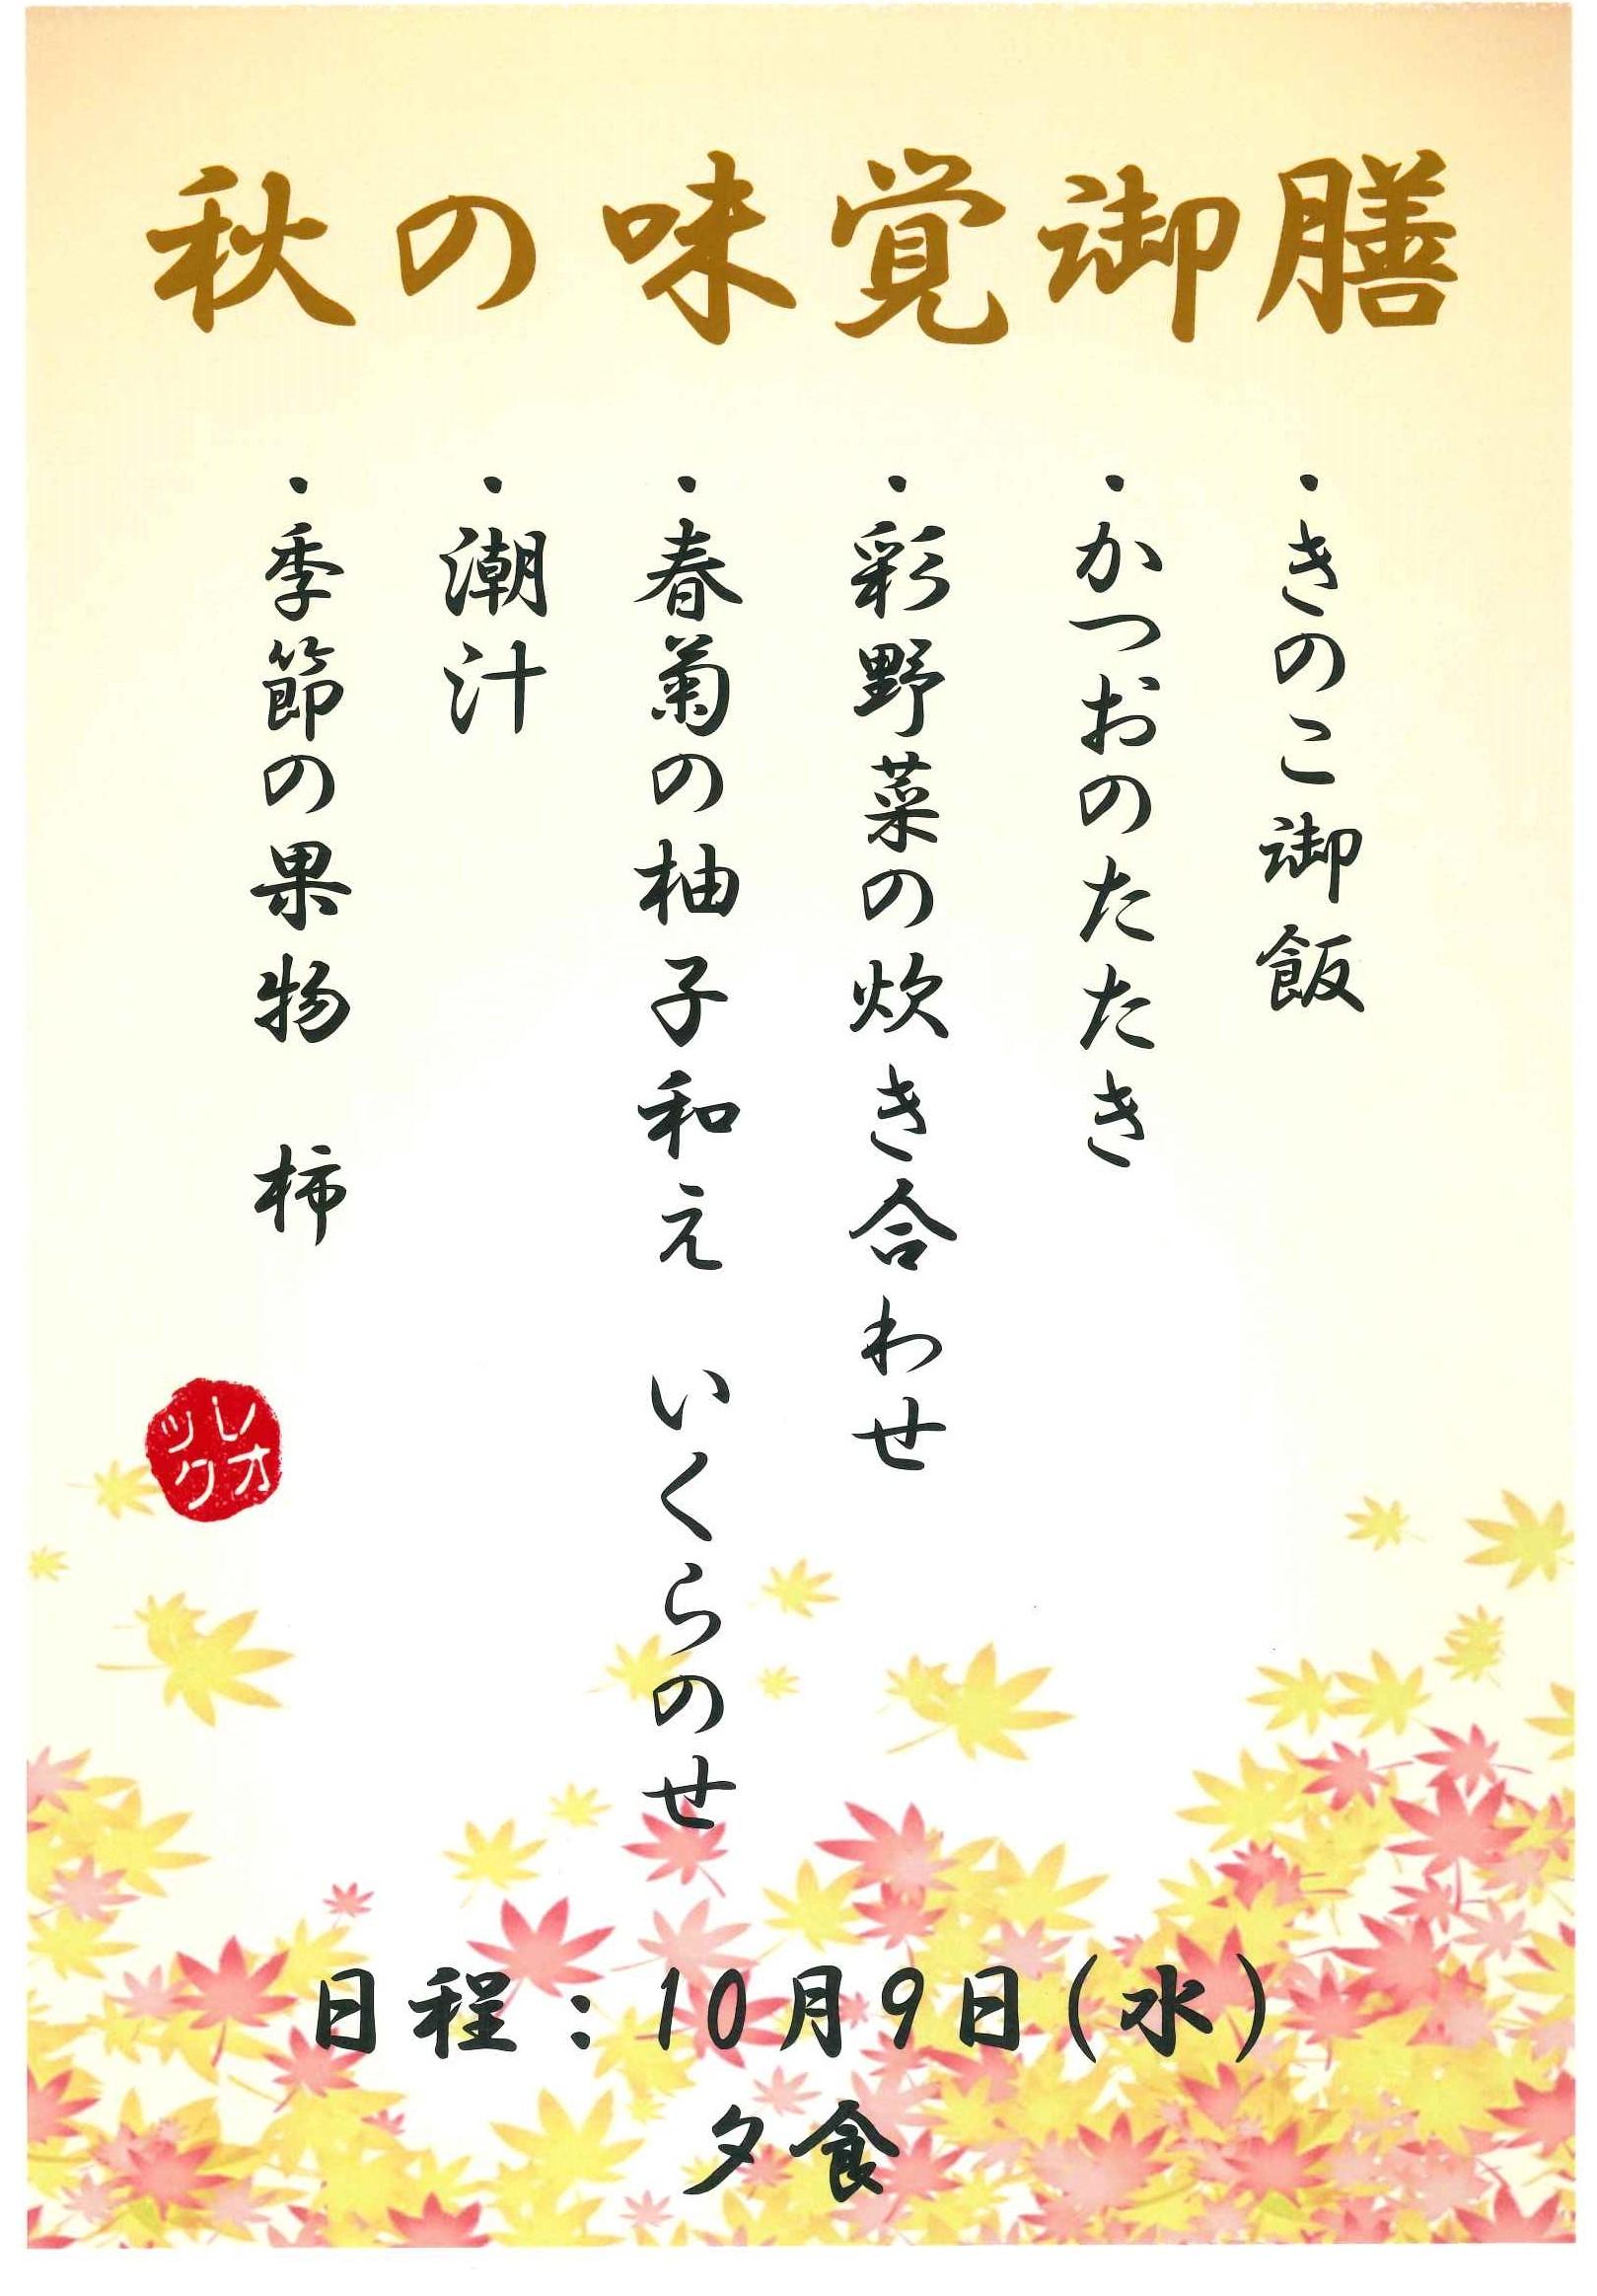 秋の味覚御膳
・きのこ御飯
・かつおのたたき
・彩野菜の炊き合わせ
・春菊の柚子和え　いくらのせ
・潮汁
・季節の果物　柿
レオ
ツク
日程：10月9日(水)
夕食